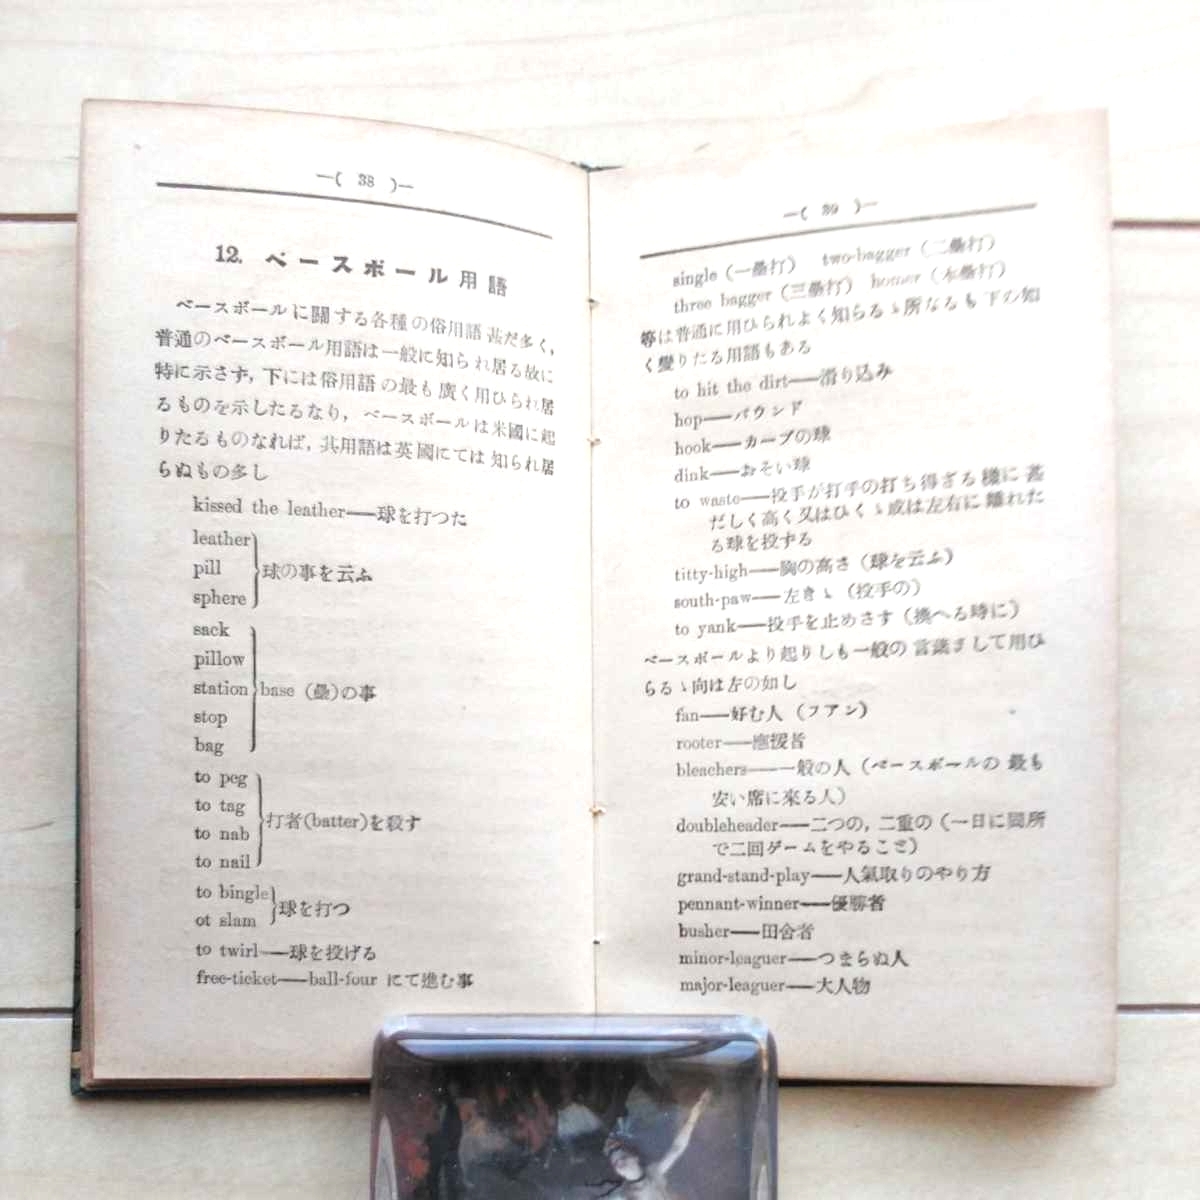 —( 38 )—
12. ベースボール用語
ベースボールに關する各種の俗用語甚だ多く，
普通のベースボール用語は一般に知られ居る故に
特に示さず，下には俗用語の最も廣く用ひられ居
るものを示したるなり，ベースボールは米國に起
りたるものなれば，其用語は英國にては知られ居
らぬもの多し
kissed the leather——球を打つた
leather
pill
sphere
球の事を云ふ
sack
pillow
station
stop
bag
base (壘)の事
to peg
to tag
to nab
to nail
打者(batter)を殺す
to bingle
ot slam
球を打つ
to twirl——球を投げる
free-ticket——ball-four にて進む事
—( 39 )—
single (一壘打) two-bagger (二壘打)
three bagger (三壘打) homer (本壘打)
等は普通に用ひられよく知らるゝ所なるも下の如
く變りたる用語もある
to hit the dirt——滑り込み
hop——バウンド
hook——カーブの球
dink——おそい球
to waste——投手が打手の打ち得ざる樣に甚
だしく高く又はひくゝ或は左右に離れた
る球を投ずる
titty-high——胸の高さ (球を云ふ)
south-paw——左きゝ (投手の)
to yank——投手を止めさす (換へる時に)
ベースボールより起りしも一般の言葉さして用ひ
らるゝ向は左の如し
fan——好む人 (フアン)
rooter——應援者
bleachers——一般の人 (ベースボールの最も
安い席に來る人)
doubleheader——二つの，二重の (一日に同所
で二回ゲームをやるこさ)
grand-stand-play——人氣取りのやり方
pennant-winner——優勝者
busher——田舍者
minor-leaguer——つまらぬ人
major-leaguer——大人物